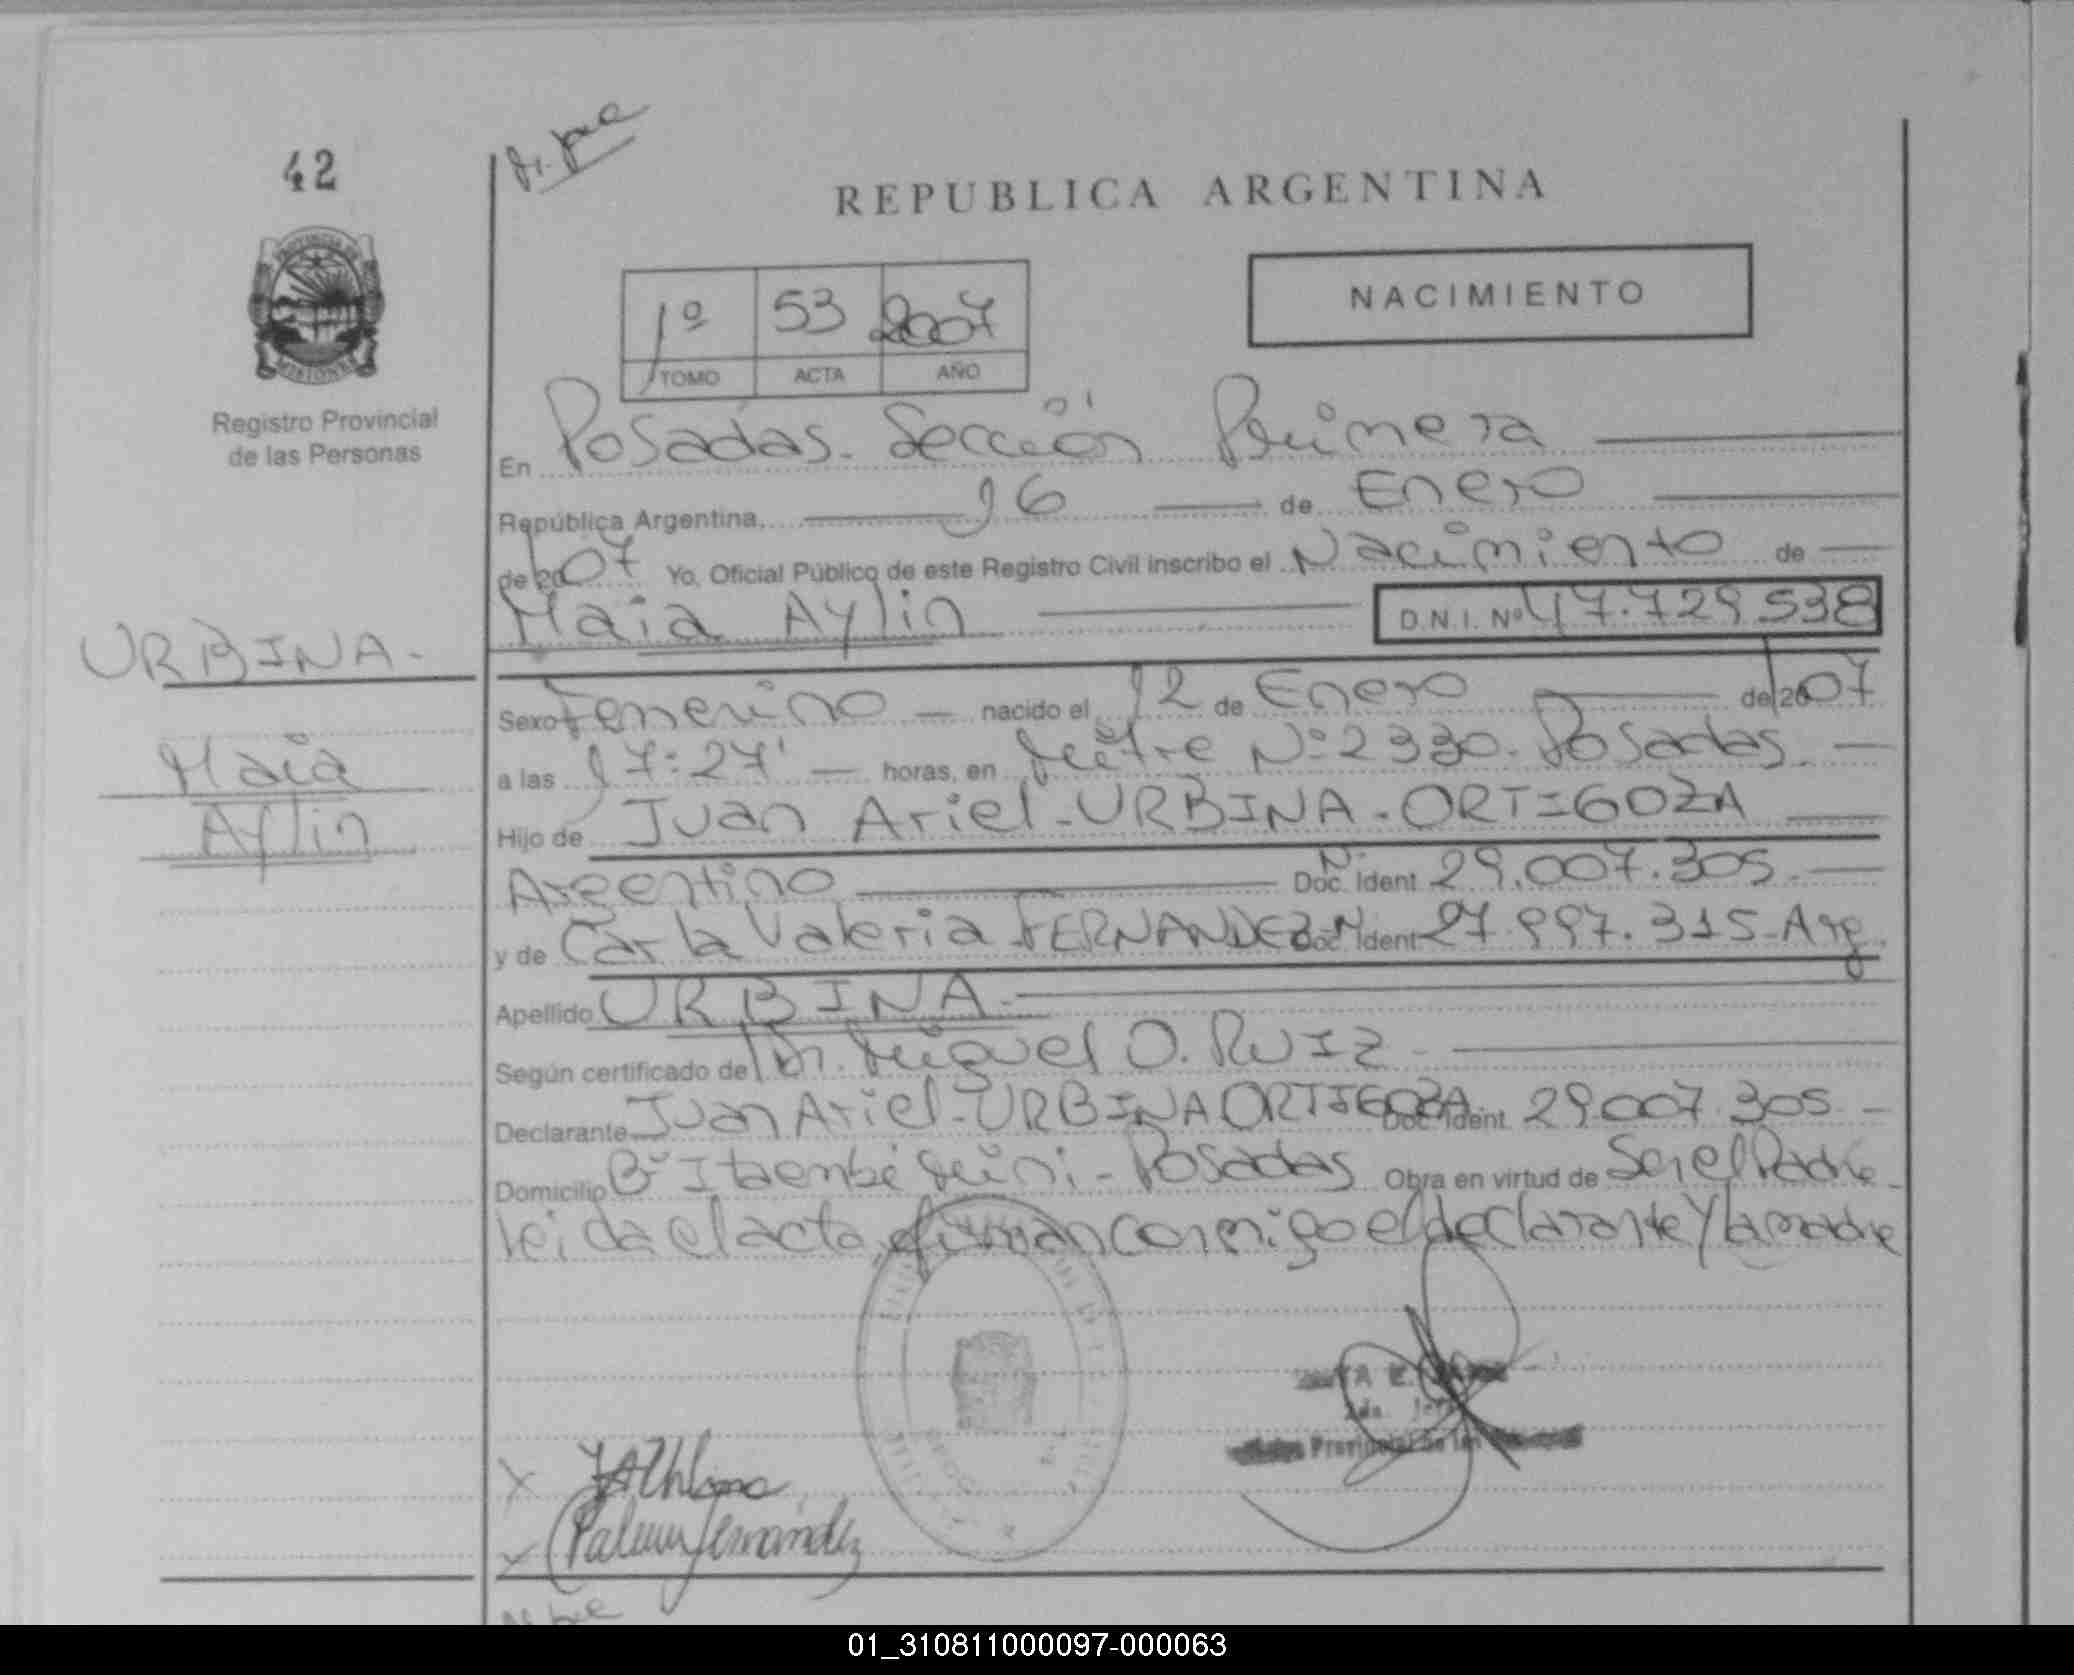 42
REPUBLICA ARGENTINA
PROVINCIA DE
MISIONES
Registro Provincial
de las Personas
NACIMIENTO
1º 53 2007
TOMO ACTA AÑO
En Posadas. Sección Primera
República Argentina, 16 de Enero
de 2007 Yo, Oficial Público de este Registro Civil inscribo el Nacimiento de
Maia Aylin D.N.I. Nº 47.729.538
URBINA.
Maia
Aylin
Sexo Femenino nacido el 12 de Enero de 2007
a las 17:27' horas, en Mitre Nº 2330. Posadas.
Hijo de Juan Ariel-URBINA-ORTIGOZA
Argentino Doc. Ident 29.007.305.
y de Carla Valeria FERNANDEZ Doc. Ident 27.997.315-Arg.
Apellido URBINA.
Según certificado de Dr. Miguel O. RUIZ
Declarante Juan Ariel-URBINA ORTIGOZA Doc. Ident. 29.007.305
Domicilio Bº Itaembé Mini - Posadas Obra en virtud de Ser el Padre
leida el acta, firman conmigo el declarante y la madre
Fernández
01_310811000097-000063